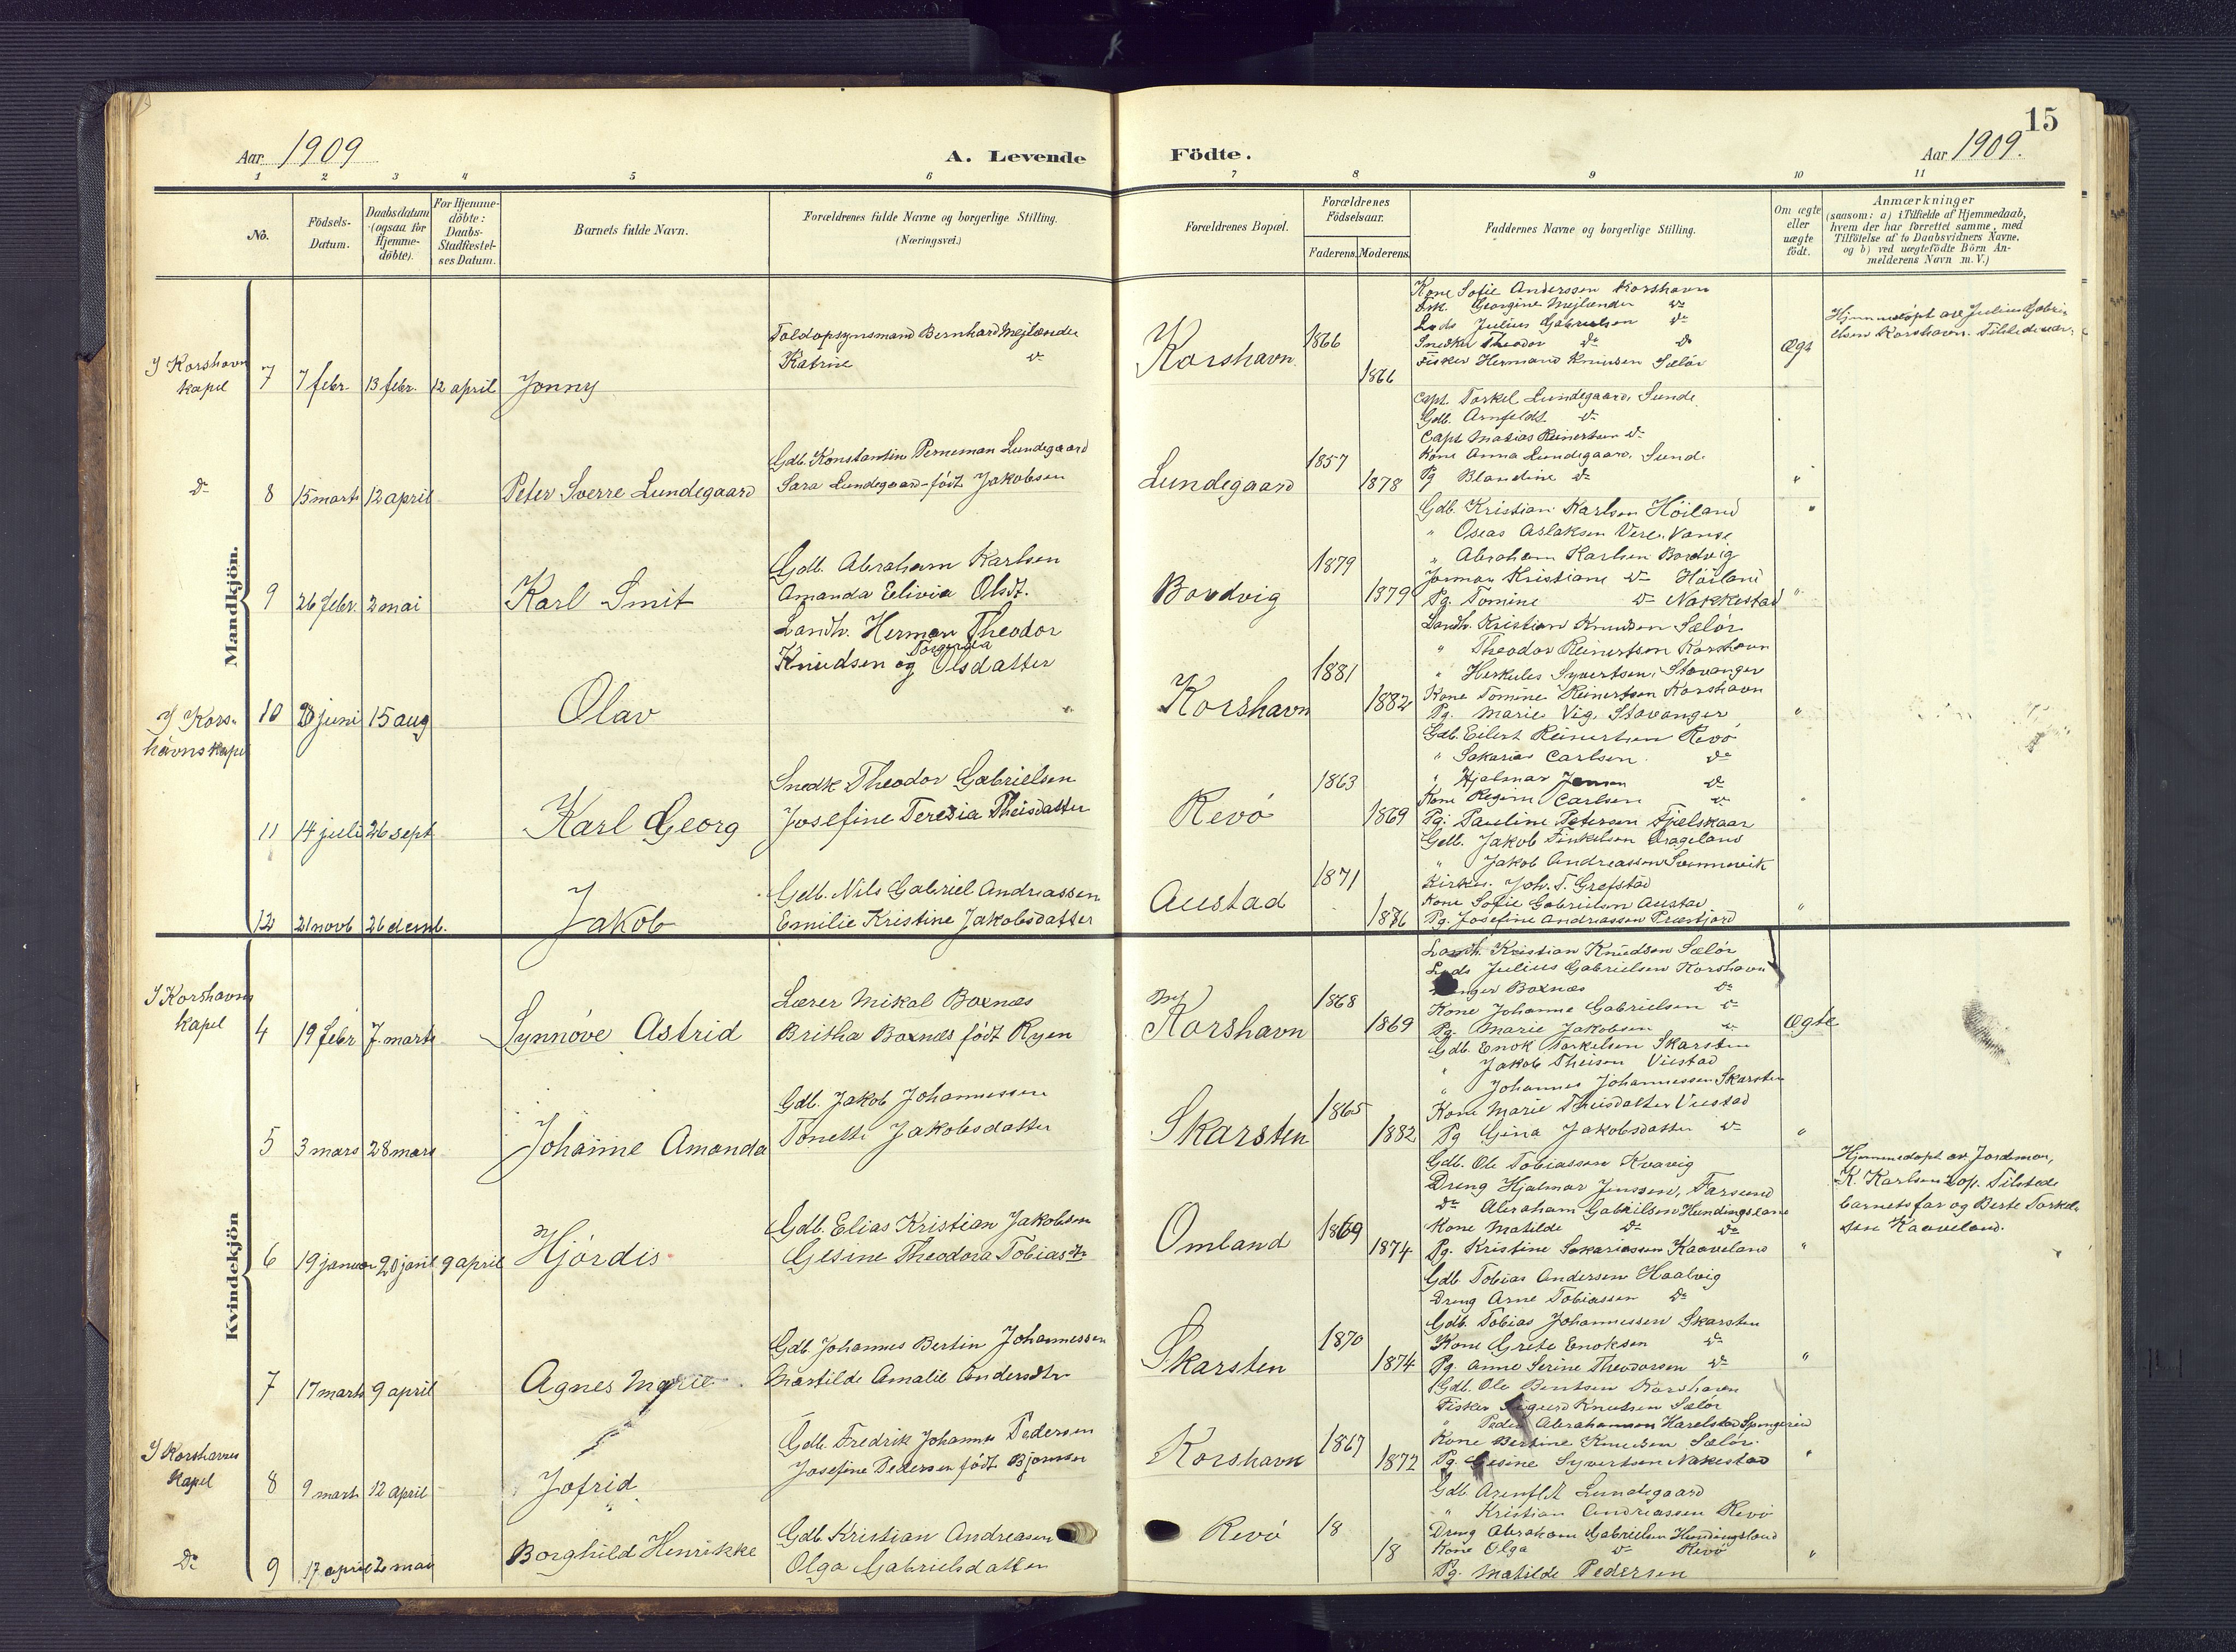 15
Aar 1909
A. Levende Födte.
Aar 1909.
1 2 3 4 5 6 7 8 9 10 11
No.
Födsels-
Datum.
Daabsdatum
(ogsaa for
Hjemme-
döbte).
For Hjemme-
döbte:
Daabs-
Stadfæstel-
ses Datum.
Barnets fulde Navn.
Forældrenes fulde Navne og borgerlige Stilling.
(Næringsvei.)
Forældrenes Bopæl.
Forældrenes
Födselsaar.
Faderens. Moderens.
Faddernes Navne og borgerlige Stilling.
Om ægte
eller
uægte
födt.
Anmærkninger
(saasom: a) i Tilfælde af Hjemmedaab,
hvem der har forrettet samme, med
Tilföielse af to Daabsvidners Navne,
og b) ved uægtefödte Börn An-
melderens Navn m. V.)
Mandkjön.
I Korshavn
kapel
7 7 febr. 13 febr. 12 april Jonny
Toldopsynsmand Bernhard Mejlænder
Katrine do
Korshavn 1866 1866
Kone Sofie Anderssen Korshavn
Frk. Georgine Mejlænder do
Lods Julius Gabrielsen do
Snedker Theodor do do
Fisker Hermand Knudsen Sælör
Ægte
Hjemmedöpt av Julius Gabri-
elsen Korshavn.
do
8 15 marts 12 april Peter Sverre Lundegaard
Gdb. Konstantin Perneman Lundegaard
Sara Lundegaard född Jakobsen
Lundegaard 1857 1878
Capt. Torkel Lundegaard, Sunde
Gdb. Arnfeldt do
Capt Matias Reinertsen do
Kone Anna Lundegaard, Sunde
Pg Blandine do
"
9 26 febr. 2 mai Karl Smit
Gdb. Abraham Karlsen
Amanda Elivia Olsdt.
Bordvig 1879 1879
Gdb. Kristian Karlsen Höiland
" Oseas Aslaksen Vere, Vanse
" Abraham Karlsen Bordvig
Jormor Kristiane do Höiland
Pg. Tomine do Nakkestad
"
I Kors-
havns kapel
10 20 juni 15 aug Olav
Landh. Herman Theodor
Knudsen og Torgerda Olsdatter
Korshavn 1881 1882
Landh. Kristian Knudsen Sælör
" Theodor Reinertsen Korshavn
" Herkules Syvertsen, Stavanger
Kone Tomine Reinertsen Korshavn
Pg. Marie Vig Stavanger
"
11 14 juli 26 sept Karl Georg
Snedk Theodor Gabrielsen
Josefine Teresia Theisdatter
Revö 1863 1869
Gdb. Eilert Reinertsen Revö
" Sakarias Carlsen do
" Hjalmar Jensen do
Kone Regine Carlsen do
Pg. Pauline Petersen Fjælskaar
12 21 novb 26 desmb. Jakob
Gdb. Nils Gabriel Andreassen
Emilie Kristine Jakobsdatter
Austad 1871 1876
Gdb. Jakob Tinkelsen Drageland
" Jakob Andreassen Svennevik
Kirkes. Joh. T. Grefstad
Kone Sofie Gabrielsen Austad
Pg. Josefine Andreassen Præstjord
"
Kvindekjön
I Korshavns
kapel
4 19 febr 7 marts Synnöve Astrid
Lærer Mikal Boxnæs
Britha Boxnæs födt Ryen
Korshavn 1868 1869
Landh. Kristian Knudsen Sælör
Lods Julius Gabrielsen Korshavn
Boxnæs do
Kone Johanne Gabrielsen do
Pg. Marie Jakobsen do
Ægte
5 3 mars 28 mars Johanne Amanda
Gdb. Jakob Johannessen
Tonette Jakobsdatter
Skarsten 1865 1882
Gdb. Enok Torkelsen Skarsten
" Jakob Theisen Viestad
" Johannes Johannessen Skarsten
Kone Marie Theisdatter Viestad
Pg Gina Jakobsdatter do
"
6 19 januar 20 jan 9 april Hjördis
Gdb. Elias Kristian Jakobsen
Gesine Theodora Tobiasdtr
Omland 1869 1874
Gdb. Ole Tobiassen Kvavig
Dreng Hjalmar Jenssen, Farsund
do Abraham Gabrielsen Hundingsland
Kone Matilde do do
Pg. Kristine Sakariassen Kaaveland
"
Hjemmedöpt av Jordmor,
K. Karlsen Lop. Tilstede
barnets far og Berte Torkel-
sen Kaaveland.
7 17 marts 9 april Agnes Marie
Gdb. Johannes Bertin Johannessen
Martilde Amalie Andersdtr
Skarsten 1870 1874
Gdb Tobias Andersen Haalvig
Dreng Arne Tobiassen do
Gdb. Tobias Johannessen Skarsten
Kone Grete Enoksen do
Pg. Anne Serine Theodorsen do
"
I Korshavns
Kapel
8 9 marts 12 april Jofrid
Gdb. Fredrik Johannes Pedersen
Josefine Pedersen födt Bjornsen
Korshavn 1867 1872
Gdb. Ole Berntsen Korshavn
Fisker Sigurd Knutsen Sælör
" Peder Abrahamsen Harelstad Spangereid
Kone Bertine Knudsen Sælör.
Pg. Gesine Syvertsen Nakestad
"
do
9 17 april 20 mai Borghild Henrikke
Gdb. Kristian Andreasen
Olga Gabrielsdatter
Revö 18 18
Gdb Arenfldt Lundegaard
" Kristian Andreassen Revö
Dreng Abraham Gabrielsen Hundingsland
Kone Olga do Revö
Pg. Matilde Pedersen
"